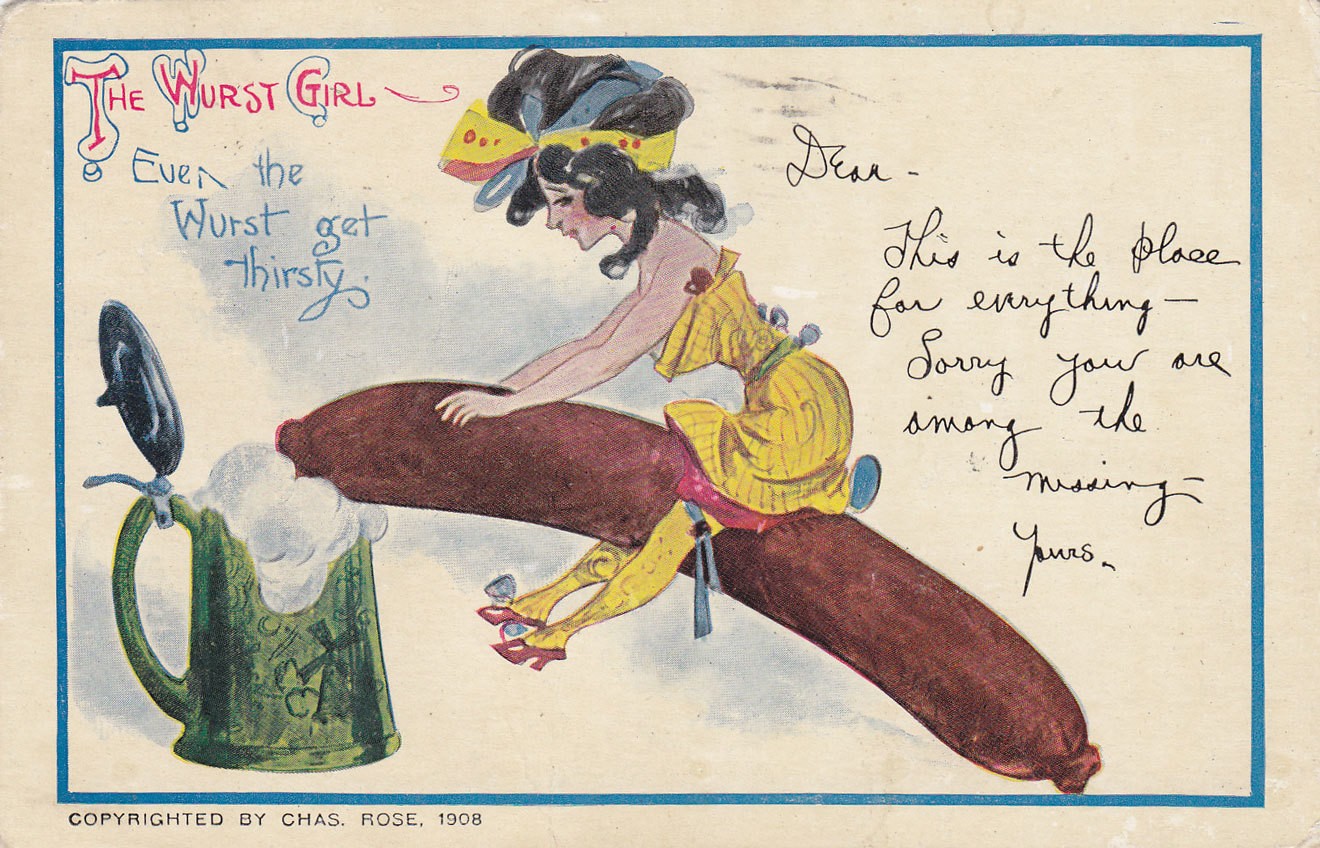 THE WURST GIRL
Even the
Wurst get
thirsty.
Dear -
This is the place
for everything —
Sorry you are
among the
missing —
Yours.
COPYRIGHTED BY CHAS. ROSE, 1908